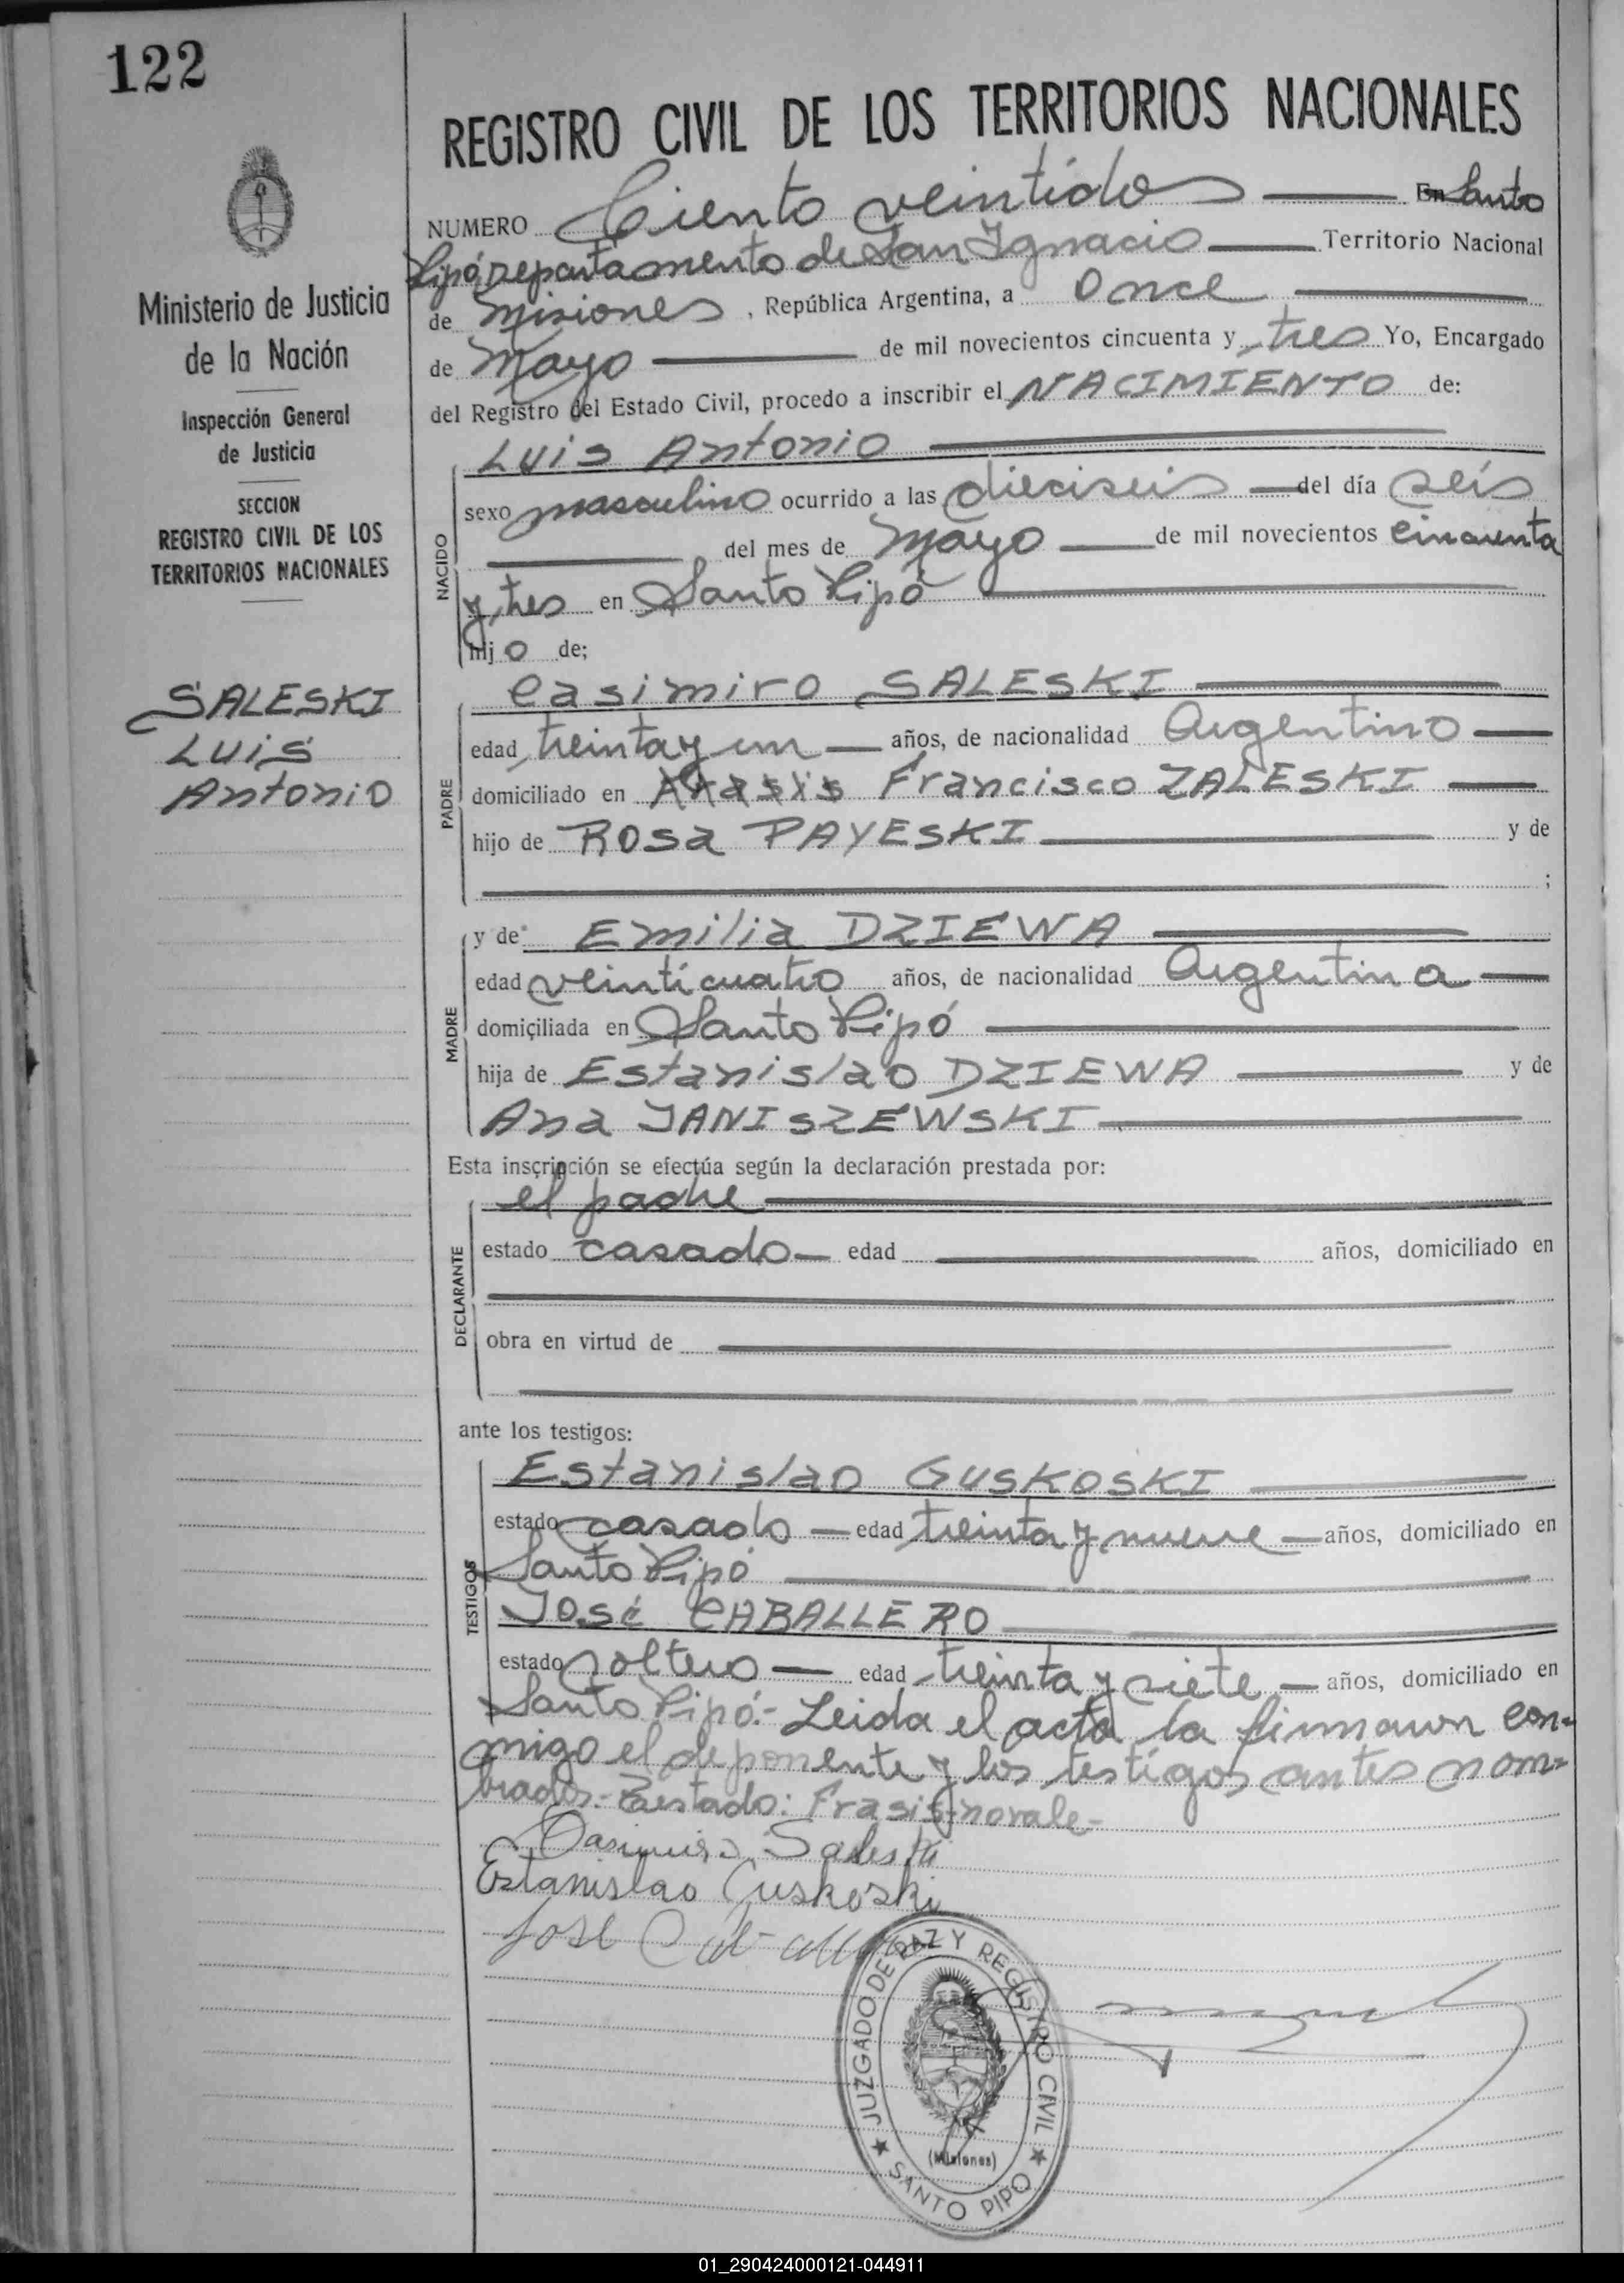 122
Ministerio de Justicia
de la Nación
Inspección General
de Justicia
SECCION
REGISTRO CIVIL DE LOS
TERRITORIOS NACIONALES
SALESKI
Luis
Antonio
REGISTRO CIVIL DE LOS TERRITORIOS NACIONALES
NUMERO Ciento veintidos En Santo
Pipó, departamento de San Ignacio Territorio Nacional
de Misiones, República Argentina, a once
de Mayo de mil novecientos cincuenta y tres Yo, Encargado
del Registro del Estado Civil, procedo a inscribir el NACIMIENTO de:
Luis Antonio
NACIDO
sexo masculino ocurrido a las dieciseis del día seis
del mes de Mayo de mil novecientos cincuenta
y tres en Santo Pipó
hijo de;
Casimiro SALESKI
PADRE
edad treinta y un años, de nacionalidad Argentino
domiciliado en Francisco ZALESKI
hijo de Rosa PAYESKI y de
;
y de Emilia DZIEWA
MADRE
edad veinticuatro años, de nacionalidad Argentina
domiciliada en Santo Pipó
hija de Estanislao DZIEWA y de
Ana JANISZEWSKI
Esta inscripción se efectúa según la declaración prestada por:
el padre
DECLARANTE
estado casado edad años, domiciliado en
obra en virtud de
ante los testigos:
TESTIGOS
Estanislao GUSKOSKI
estado casado edad treinta y nueve años, domiciliado en
Santo Pipó
José CABALLERO
estado soltero edad treinta y siete años, domiciliado en
Santo Pipó.- Leida el acta la firmaron con-
migo el deponente y los testigos antes nom-
brados.- Testado: no vale-
Casimiro Saleski
Estanislao Guskoski
José
JUZGADO DE PAZ Y REGISTRO CIVIL
(Misiones)
SANTO PIPO
01_290424000121-044911